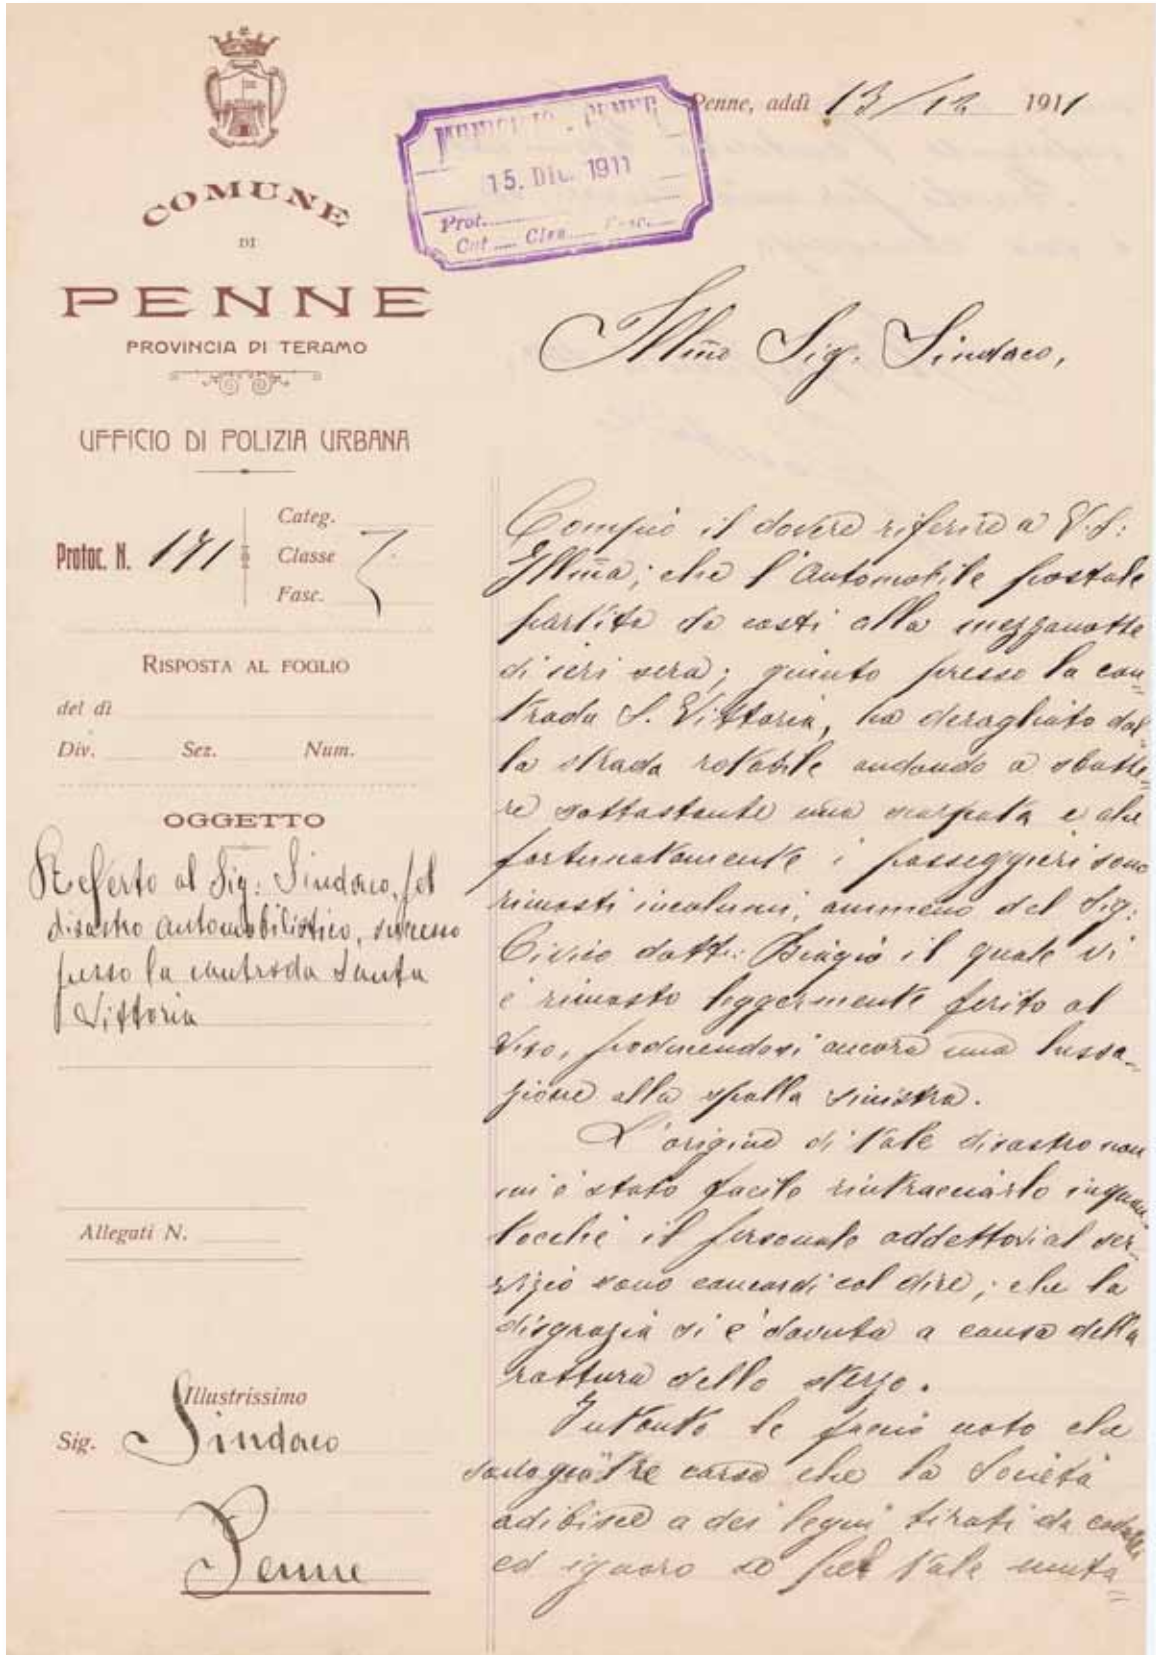 COMUNE
DI
PENNE
PROVINCIA DI TERAMO
UFFICIO DI POLIZIA URBANA
Protoc. N. 171
Categ.
Classe 7.
Fasc.
RISPOSTA AL FOGLIO
del dì
Div. Sez. Num.
OGGETTO
Referto al Sig: Sindaco, pel
disastro automobilistico, successo
presso la contrada Santa
Vittoria
Allegati N.
Illustrissimo
Sig. Sindaco
Penne
MUNICIPIO - PENNE
15. DIC. 1911
Prot.
Cat. Clas. Fasc.
Penne, addì 13/12 1911
Illmo Sig. Sindaco,
Compio il dovere riferire a V.S:
Illma; che l'Automobile postale
partita da costì alla mezzanotte
di ieri sera; giunto presso la con=
trada S. Vittoria, ha deragliato dal=
la strada rotabile andando a sbatte=
re sottostante una scarpata e che
fortunatamente i passeggieri sono
rimasti incolumi, ammeno del Sig:
Civico dott: Biagio il quale vi
è rimasto leggermente ferito al
viso, producendosi ancora una lussa=
zione alla spalla sinistra.
L'origine di tale disastro non
mi è stato facile rintracciarlo inquan=
tocchè il personale addettovi al ser=
vizio sono concordi col dire; che la
disgrazia si è dovuta a causa della
rottura dello sterzo.
Intanto le faccio noto che
sono già tre corse che la Società
adibisce a dei legni tirati da cavalli
ed ignoro se per tale muta=